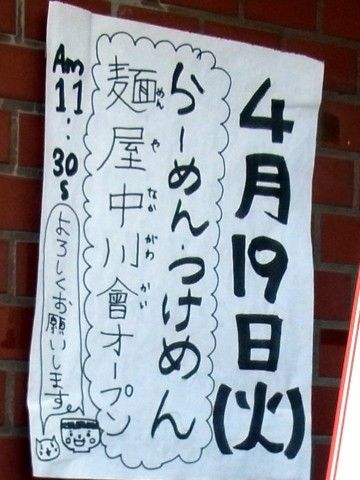 4月19日(火)
らーめん・つけめん
麺屋中川會オープン
めんやなかがわかい
Am11:30~
よろしくお願いします